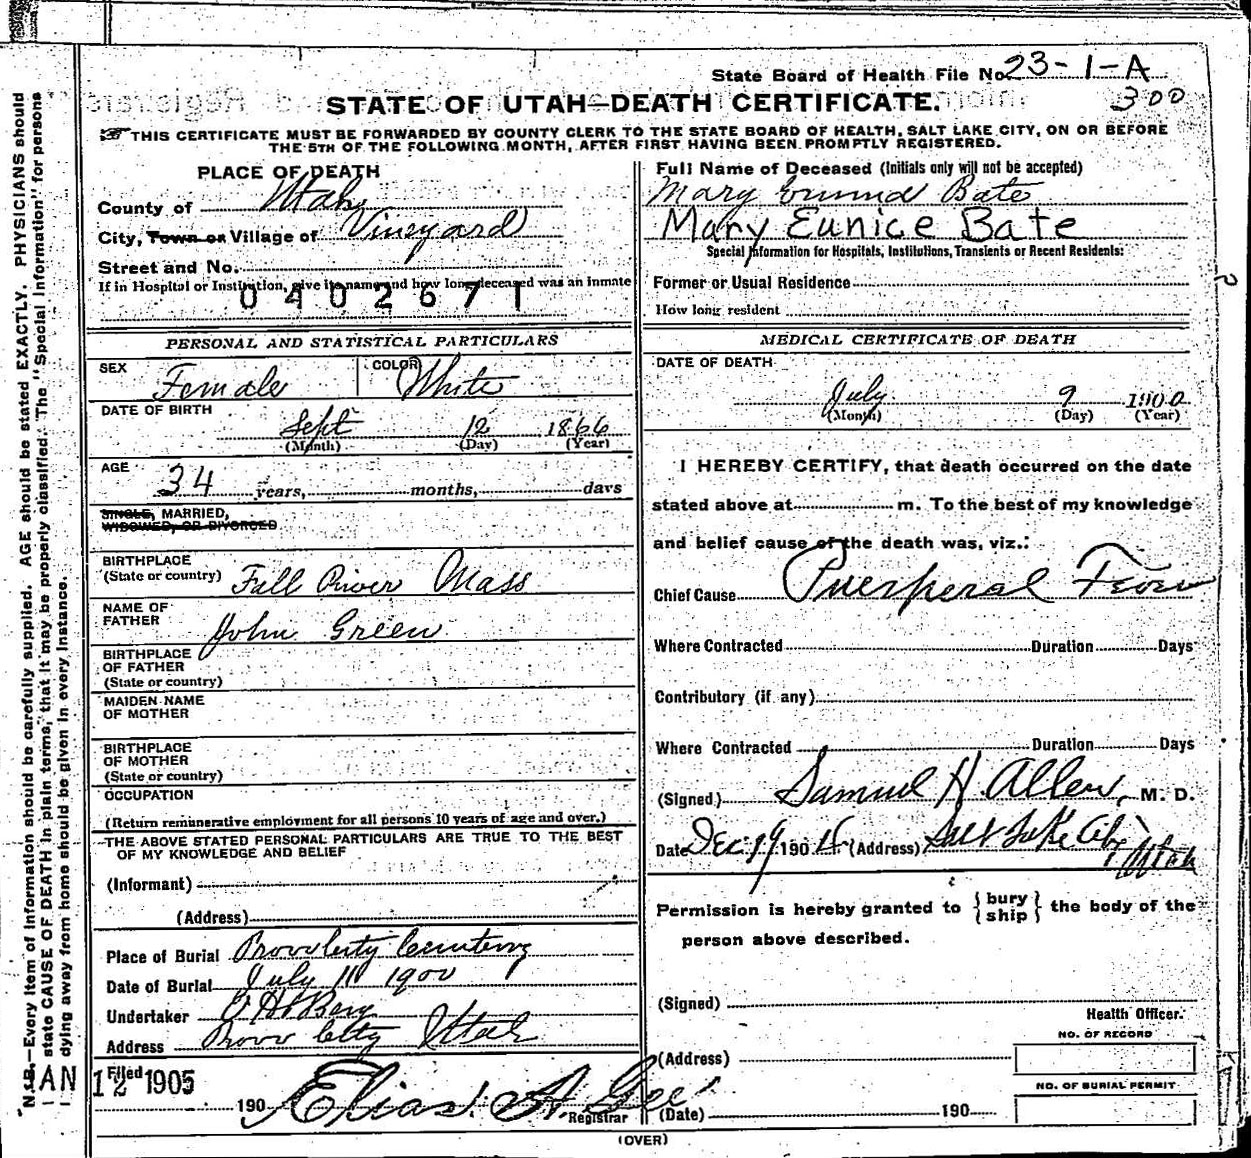 State Board of Health File No. 23-1-A
300
STATE OF UTAH—DEATH CERTIFICATE.
THIS CERTIFICATE MUST BE FORWARDED BY COUNTY CLERK TO THE STATE BOARD OF HEALTH, SALT LAKE CITY, ON OR BEFORE
THE 5TH OF THE FOLLOWING MONTH, AFTER FIRST HAVING BEEN PROMPTLY REGISTERED.
PLACE OF DEATH
County of Utah
City, Town or Village of Vineyard
Street and No.
If in Hospital or Institution, give its name and how long deceased was an Inmate
0402671
PERSONAL AND STATISTICAL PARTICULARS
SEX Female COLOR White
DATE OF BIRTH
Sept 12 1866
(Month) (Day) (Year)
AGE
34 years, months, days
SINGLE, MARRIED,
WIDOWED, OR DIVORCED
BIRTHPLACE
(State or country) Fall River Mass
NAME OF
FATHER John Green
BIRTHPLACE
OF FATHER
(State or country)
MAIDEN NAME
OF MOTHER
BIRTHPLACE
OF MOTHER
(State or country)
OCCUPATION
(Return remunerative employment for all persons 10 years of age and over.)
THE ABOVE STATED PERSONAL PARTICULARS ARE TRUE TO THE BEST
OF MY KNOWLEDGE AND BELIEF
(Informant)
(Address)
Place of Burial Provo City Cemetery
Date of Burial July 11 1900
Undertaker O H Berg
Address Provo City Utah
Filed
JAN 12 1905
190 Elias A. Gee
Registrar
Full Name of Deceased (Initials only will not be accepted)
Mary Bate
Mary Eunice Bate
Special Information for Hospitals, Institutions, Transients or Recent Residents:
Former or Usual Residence
How long resident
MEDICAL CERTIFICATE OF DEATH
DATE OF DEATH
July 9 1900
(Month) (Day) (Year)
I HEREBY CERTIFY, that death occurred on the date
stated above at m. To the best of my knowledge
and belief cause of the death was, viz.:
Chief Cause Puerperal Fever
Where Contracted Duration Days
Contributory (if any)
Where Contracted Duration Days
(Signed) Samuel H Allen, M. D.
Date Dec 19 1904 (Address) Salt Lake City
Utah
Permission is hereby granted to {bury ship} the body of the
person above described.
(Signed)
Health Officer.
NO. OF RECORD
(Address)
NO. OF BURIAL PERMIT
(Date) 190
(OVER)
N.B.—Every item of information should be carefully supplied. AGE should be stated EXACTLY. PHYSICIANS should
state CAUSE OF DEATH in plain terms, that it may be properly classified. The "Special Information" for persons
dying away from home should be given in every instance.